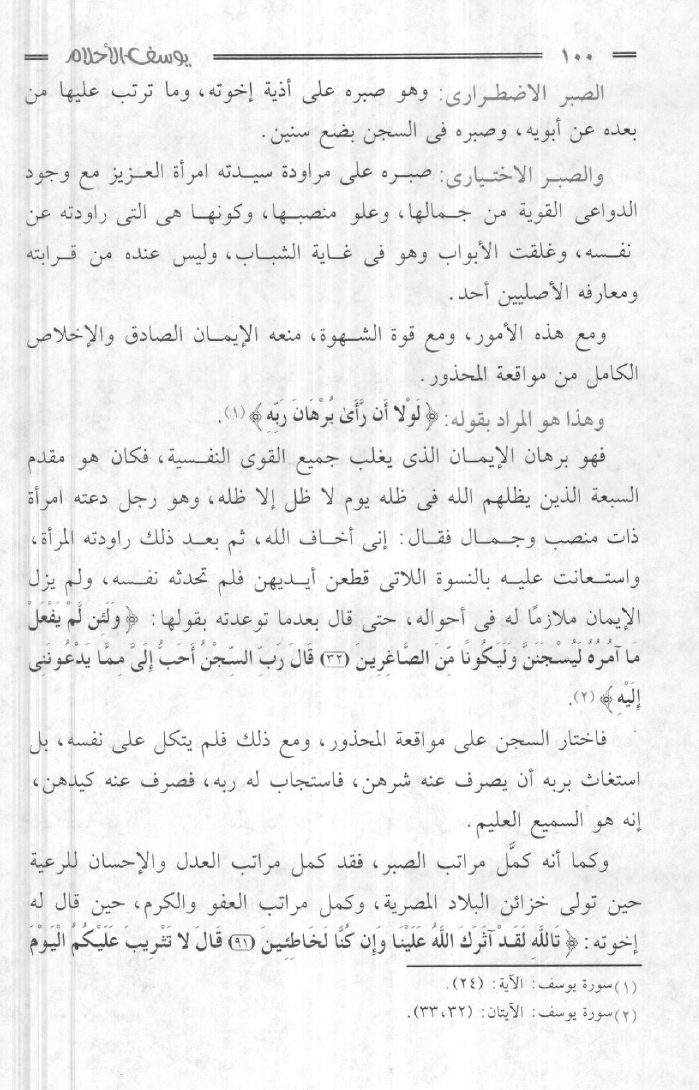 ١٠٠ يوسف-الأحلام
الصبر الاضطرارى: وهو صبره على أذية إخوته، وما ترتب عليها من
بعده عن أبويه، وصبره فى السجن بضع سنين.
والصبر الاختيارى: صبره على مراودة سيدته امرأة العزيز مع وجود
الدواعى القوية من جمالها، وعلو منصبها، وكونها هى التى راودته عن
نفسه، وغلقت الأبواب وهو فى غاية الشباب، وليس عنده من قرابته
ومعارفه الأصليين أحد.
ومع هذه الأمور، ومع قوة الشهوة، منعه الإيمان الصادق والإخلاص
الكامل من مواقعة المحذور.
وهذا هو المراد بقوله: ﴿ لَوْلا أَن رَّأَىٰ بُرْهَانَ رَبِّهِ ﴾ (١).
فهو برهان الإيمان الذى يغلب جميع القوى النفسية، فكان هو مقدم
السبعة الذين يظلهم الله فى ظله يوم لا ظل إلا ظله، وهو رجل دعته امرأة
ذات منصب وجمال فقال: إنى أخاف الله، ثم بعد ذلك راودته المرأة،
واستعانت عليه بالنسوة اللاتى قطعن أيديهن فلم تحدثه نفسه، ولم يزل
الإيمان ملازمًا له فى أحواله، حتى قال بعدما توعدته بقولها: ﴿ وَلَئِن لَّمْ يَفْعَلْ
مَا آمُرُهُ لَيُسْجَنَنَّ وَلَيَكُونًا مِّنَ الصَّاغِرِينَ (٣٢) قَالَ رَبِّ السِّجْنُ أَحَبُّ إِلَىَّ مِمَّا يَدْعُونَنِى
إِلَيْهِ ﴾ (٢).
فاختار السجن على مواقعة المحذور، ومع ذلك فلم يتكل على نفسه، بل
استغاث بربه أن يصرف عنه شرهن، فاستجاب له ربه، فصرف عنه كيدهن،
إنه هو السميع العليم.
وكما أنه كمَّل مراتب الصبر، فقد كمل مراتب العدل والإحسان للرعية
حين تولى خزائن البلاد المصرية، وكمل مراتب العفو والكرم، حين قال له
إخوته: ﴿ تَاللَّهِ لَقَدْ آثَرَكَ اللَّهُ عَلَيْنَا وَإِن كُنَّا لَخَاطِئِينَ (٩١) قَالَ لا تَثْرِيبَ عَلَيْكُمُ الْيَوْمَ
(١) سورة يوسف: الآية: (٢٤).
(٢) سورة يوسف: الآيتان: (٣٢، ٣٣).